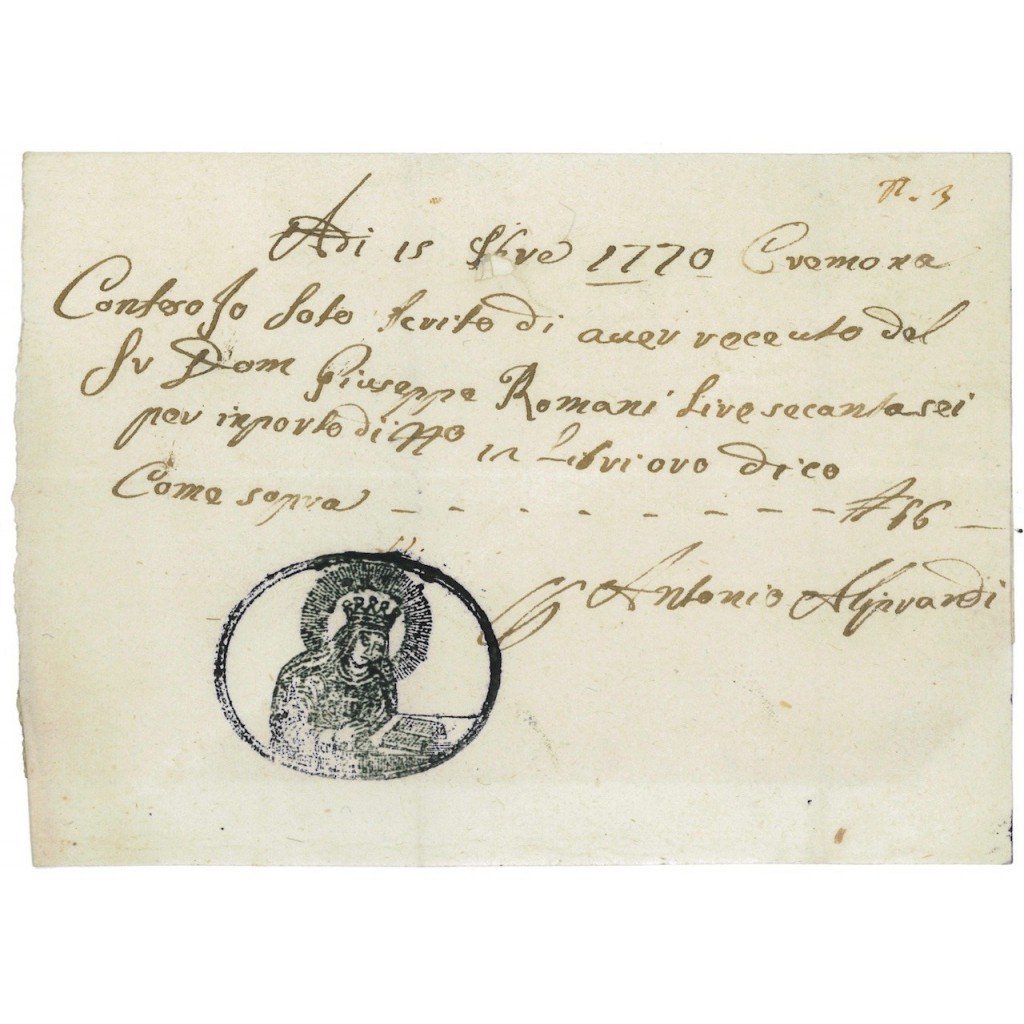 n. 3
Adi 15 9bre 1770 Cremona
Conteso Jo soto scrito di auer receuto del
Sr Dom Giuseppe Romani Lire secantasei
per inporto di in Libri oro dico
Come sopra - - - - - - - - - - 
Antonio Aliprandi